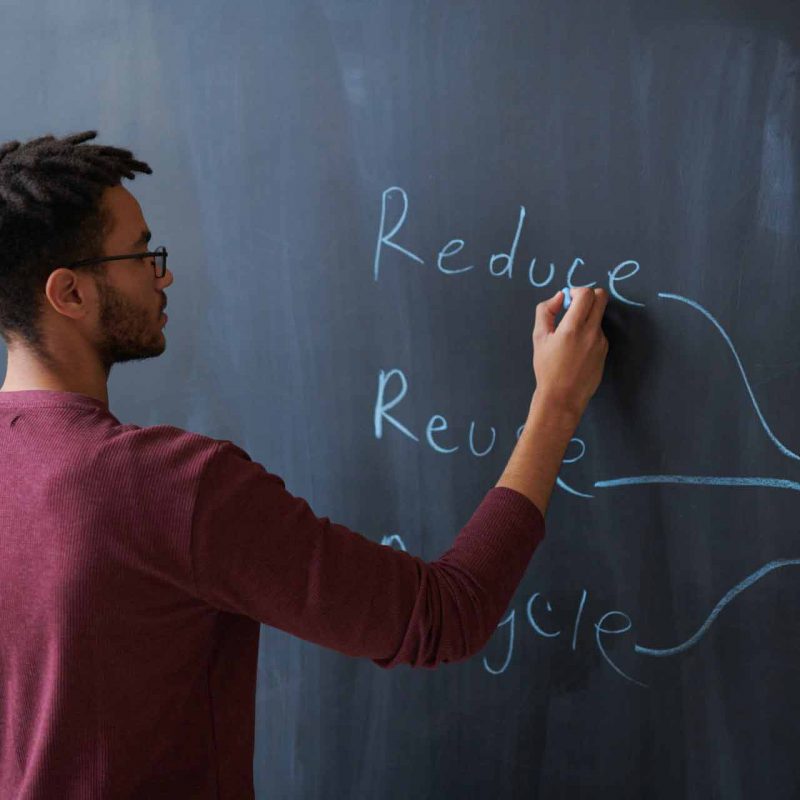 Reduce
Reuse
ycle